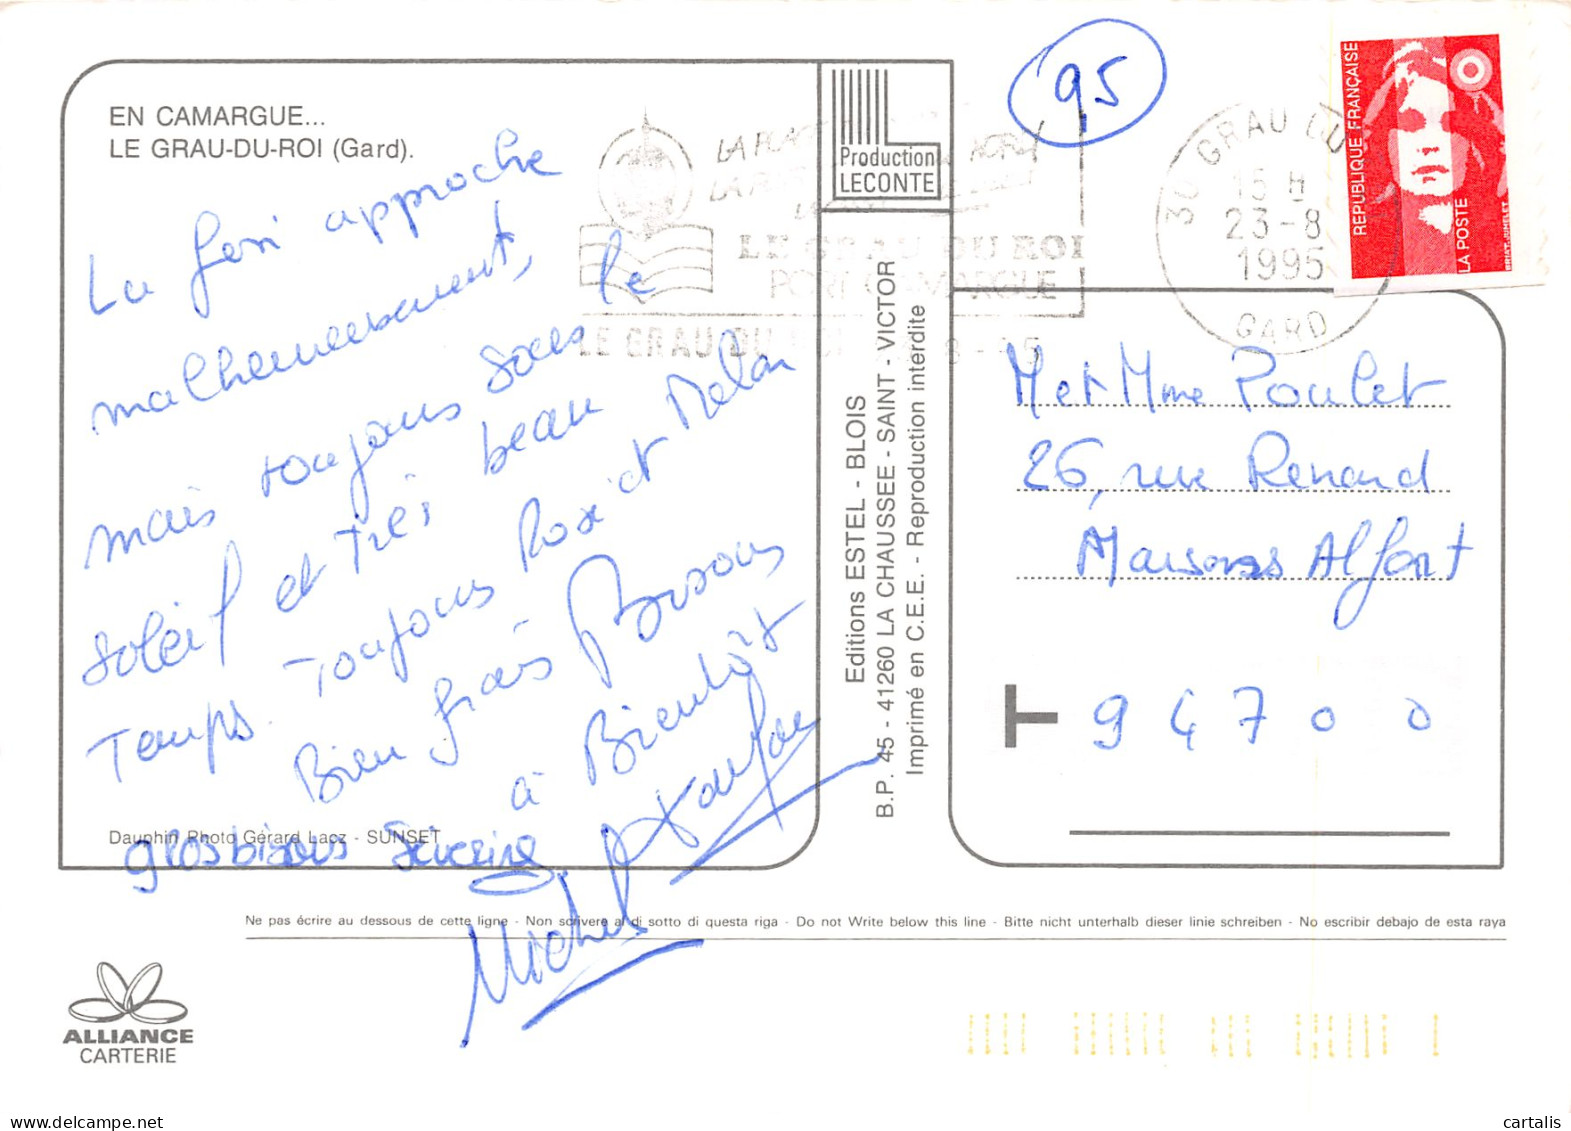 EN CAMARGUE...
LE GRAU-DU-ROI (Gard).
La fin approche
malheureusement,
mais toujours sous le
soleil et très beau
temps. Toujours Rosé et Melon
Bien frais Bisous
à Bientôt
gros bisous Séverine
Michel
Dauphin Photo Gérard Lacz - SUNSET
Production
LECONTE
Editions ESTEL - BLOIS
B.P. 45 - 41260 LA CHAUSSEE - SAINT - VICTOR
Imprimé en C.E.E. - Reproduction interdite
95
LE GRAU DU ROI
PORT CAMARGUE
LE GRAU DU ROI
30 GRAU DU
15 H
23-8
1995
GARD
REPUBLIQUE FRANÇAISE
LA POSTE
M et Mme Poulet
26, rue Renard
Maisons Alfort
94700
Ne pas écrire au dessous de cette ligne - Non scrivere al di sotto di questa riga - Do not Write below this line - Bitte nicht unterhalb dieser linie schreiben - No escribir debajo de esta raya
ALLIANCE
CARTERIE
cartalis